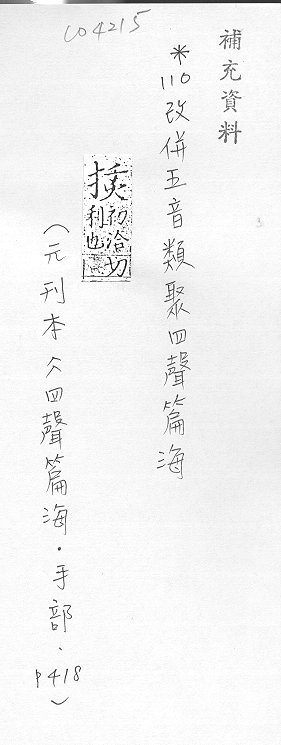 C04215
補充資料
*110改併五音類聚四聲篇海
初洽切
利也
(元刊本 四聲篇海·手部、P418)